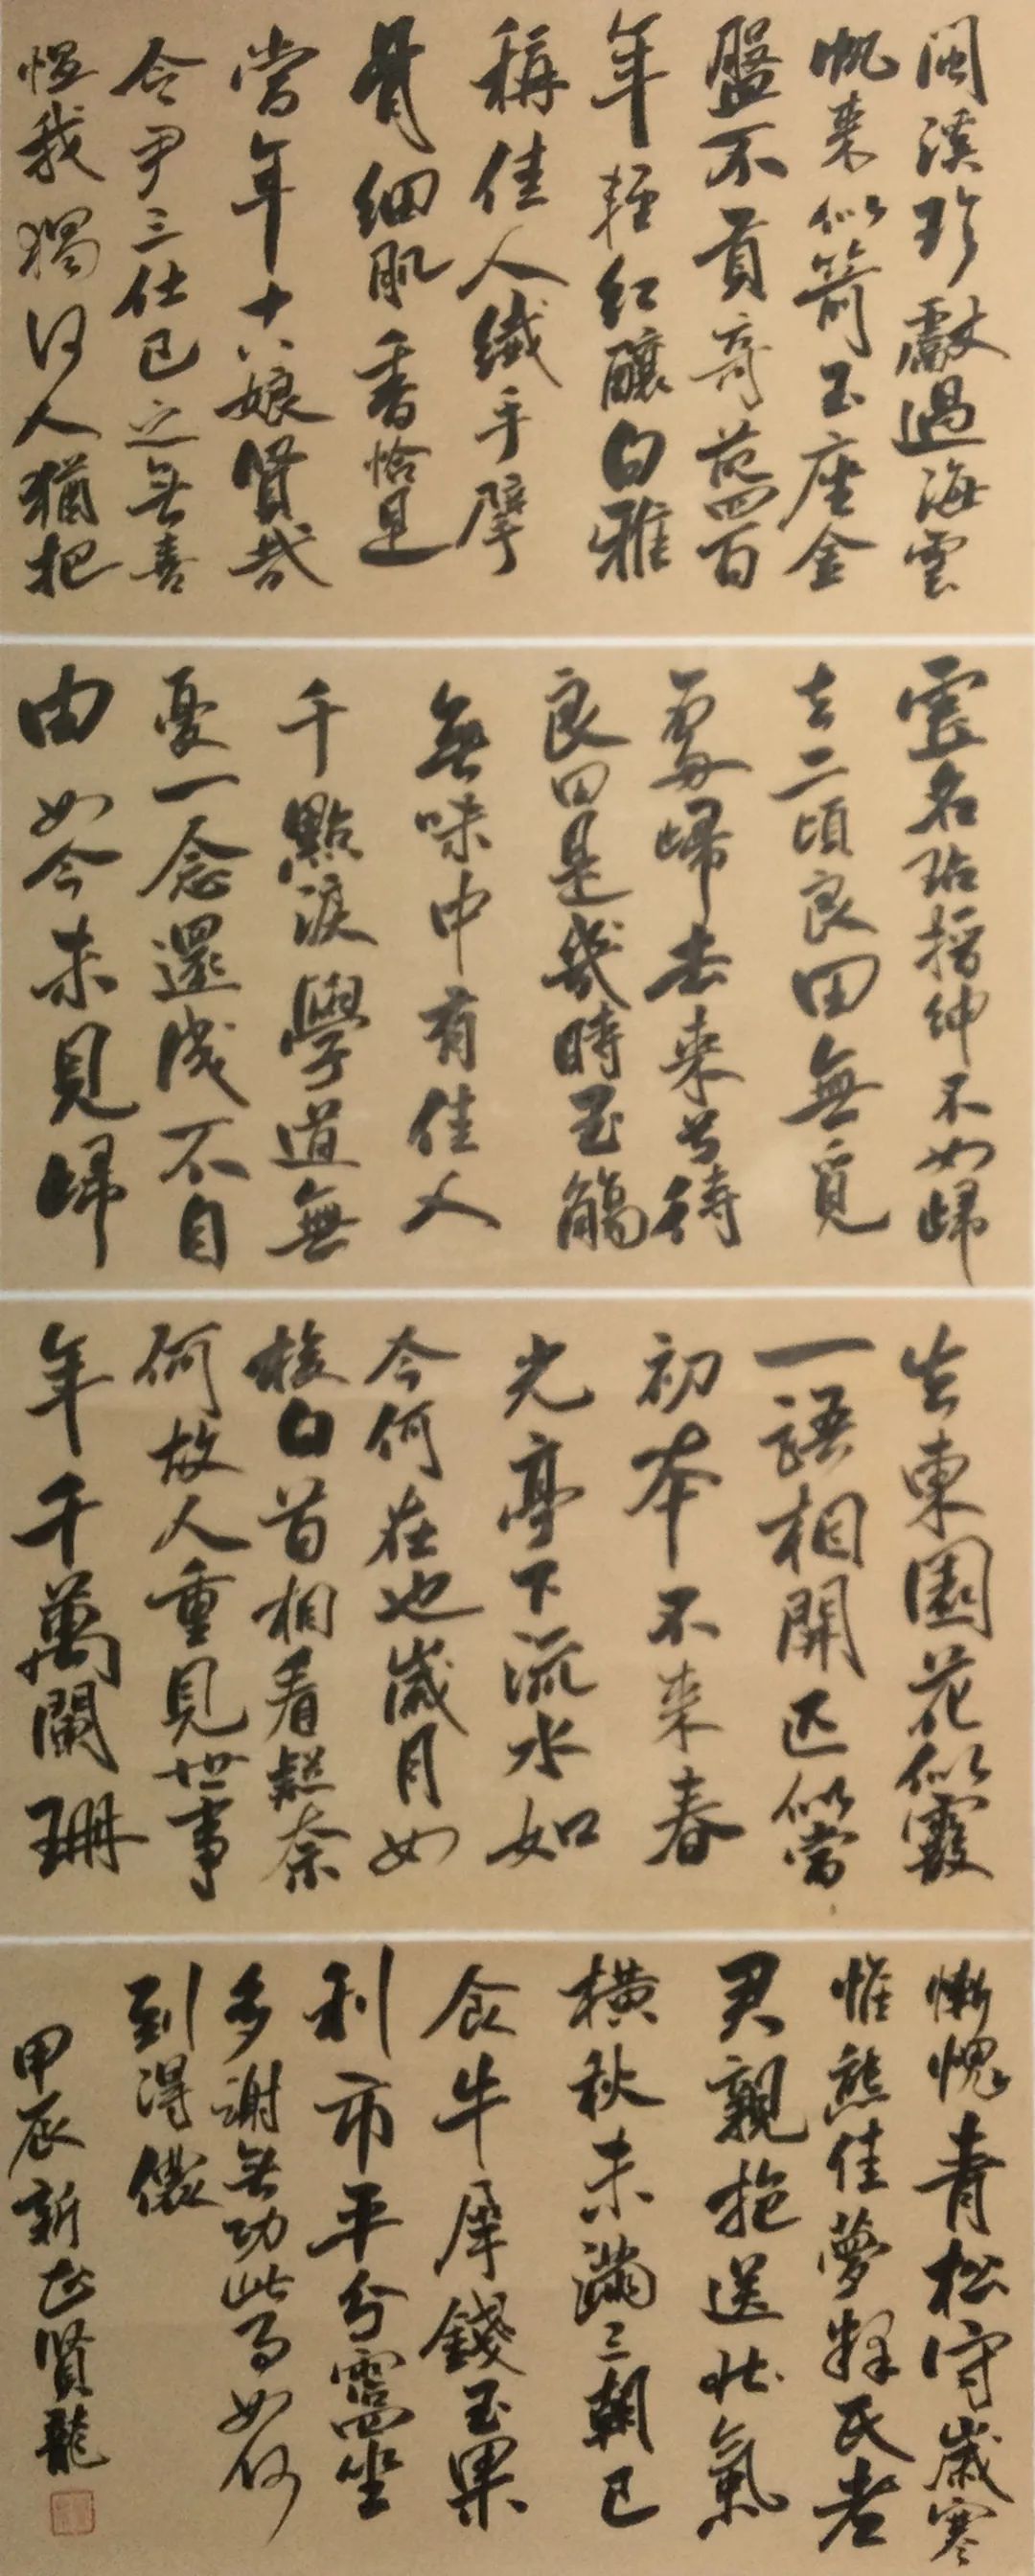 閩溪珍獻過海雲
帆来似箭玉座金
盤不貢奇葩四百
年輕紅釀白雅
稱佳人纖手擘
骨細肌香恰是
當年十八娘賢哉
令尹三仕已之無喜
愠我獨何人猶把
虚名玷搢紳不如歸
去二頃良田無覓
處歸去来兮待
良田是幾時玉觴
無味中有佳人
千點淚學道無
憂一念還成不自
由如今未見歸
去東園花似霰
一語相開匹似當
初本不来春
光亭下流水如
今何在也歲月如
梭白首相看擬奈
何故人重見世事
年千萬闌珊
慚愧青松守歲寒
惟熊佳夢釋氏老
君親抱送壯氣
横秋未滿三朝已
食牛犀錢玉果
利市平分霑四坐
多謝無功此事如何
到得儂
甲辰新正賢龍